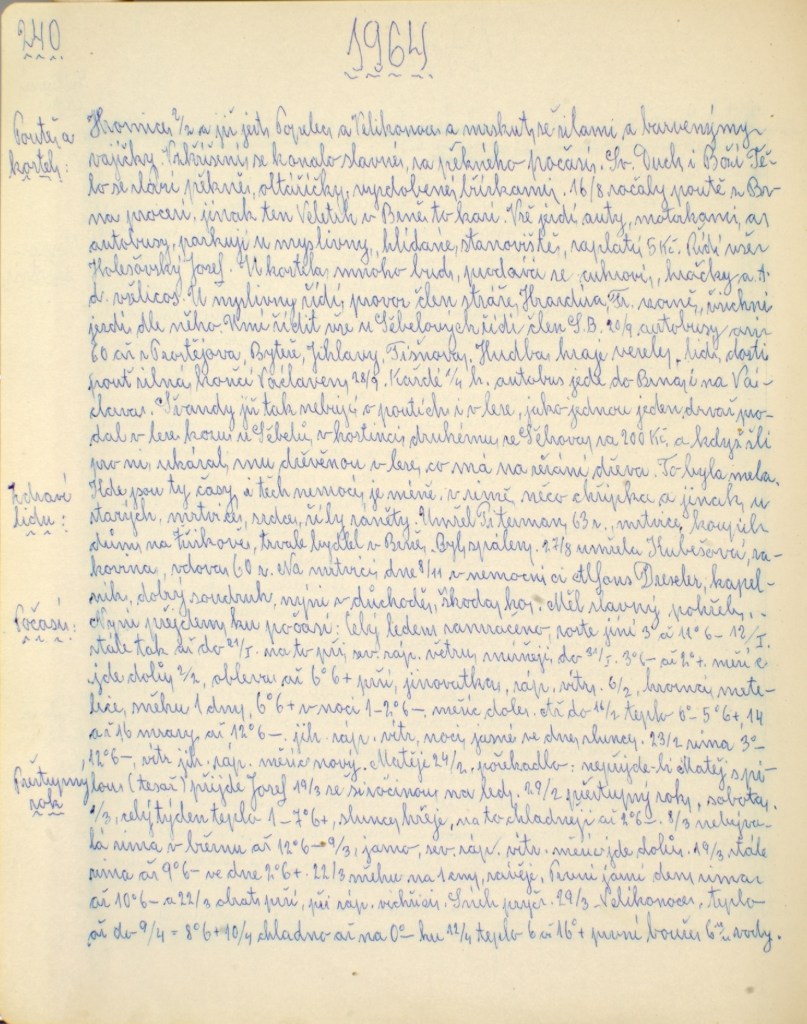 240
1964
Poutě a
kostel:
Hromice 2/2 a již jest Popelec a Velikonoce a mrskut se žilami, a barvenými
vajíčky. Vzkříšení se konalo slavné, za pěkného počasí. Sv. Duch i Boží Tě-
lo se slaví pěkně, oltáříčky vyzdobené břízkami. 16/8 začaly poutě z Br-
na procesí, jinak ten Veletrh v Brně to kazí. Vše jezdí auty, motorkami, a
autobusy, parkují u myslivny, hlídané stanoviště, zaplatí 5 Kč. Řídí vše
Holešovský Josef. U kostela mnoho bud, prodává se cukroví, hračky a A.
d. všelicos. U myslivny řídí provoz člen stráže, Hrazdíra Fr. rovně, všichni
jezdí dle něho. Umí řídit vše u Sébelových řídí člen S.B. 20/9 autobusy asi
60 až z Prostějova, Bytče, Jihlavy, Tišnova. Hudba hraje vesele, lidí dosti
pouť silná, končí Václavem 28/9. Každé 1/4 h. autobus jede do Brna i na Vá-
clava. Švandy již tak nebují o poutích i v lese, jako jednou jeden drvař pro-
dal v lese kozu u Sébelů, v hostinci, druhému ze Těhova za 200 Kč, a když šli
pro ni, ukázal mu dřevěnou v lese, co má na řezání dřeva. To byla mela.
Zdraví
lidu:
Kde jsou ty časy, i těch nemocí je méně, v zimě, něco chřipka, a jinak u
starých, mrtvice, srdce, žíly záněty. Umřel Peterman, 63 r., mrtvice, koupil
dům na tříkove, trvale bydlel v Brně. Byl spálen. 27/8 umřela Kubešová,
vdova 60 r. Na mrtvici dne 8/11 v nemocnici Alfons Drexler, kapel-
ník, dobrý soudruh, nyní v důchodě, škoda ho. Měl slavný pohřeb.
Počasí:
Nyní přejdem ku počasí: Celý leden zamračeno, roste jíní 3° až 11°6- 12/I.
stále tak až do 21/I. na to prší, sev. záp. větru, mírněji, do 31/I. 3°6- až 2°+. měsíc
jde dolů 2/2, obleva až 6°6+ prší, jinovatka, záp. vítr. 6/2, hromnice mete-
lice, sněhu 1 dny, 6°6+ v noci 1-2°6-. měsíc doles. Až do 16/2 teplo 0°- 5°6+, 14
až 16 mrazy až 12°6-. jih. záp. vítr, noci jasné ve dne slunce. 23/2 zima 3°-
12°6-, vítr jih. záp. měsíc nový. Matěje 24/2. pořekadlo: nepřijde-li Matěj s pi-
Přestupný
rok
lou (tesař) přijde Josef 19/3 se širočinou na ledy. 29/2 přestupný rok, sobota.
1/3, celý týden teplo 1-7°6+, slunce hřeje, na to chladněji až 2°6-. 8/3 nebýva-
lá zima v březnu až 12°6- 9/3, jasno, sev. záp. vítr. měsíc jde dolů. 19/3 stále
zima až 9°6- ve dne 2°6+. 22/3 sněhu na 1 cm, závěje. První jarní den zima
až 10°6- a 22/3 obrat prší, při záp. vichřici. Sníh pryč. 29/3 Velikonoce, teplo
až do 9/4 = 8°6+ 10/4 chladno až na 0°- ku 12/4 teplo 6 až 16°+ první bouře 6 vody.